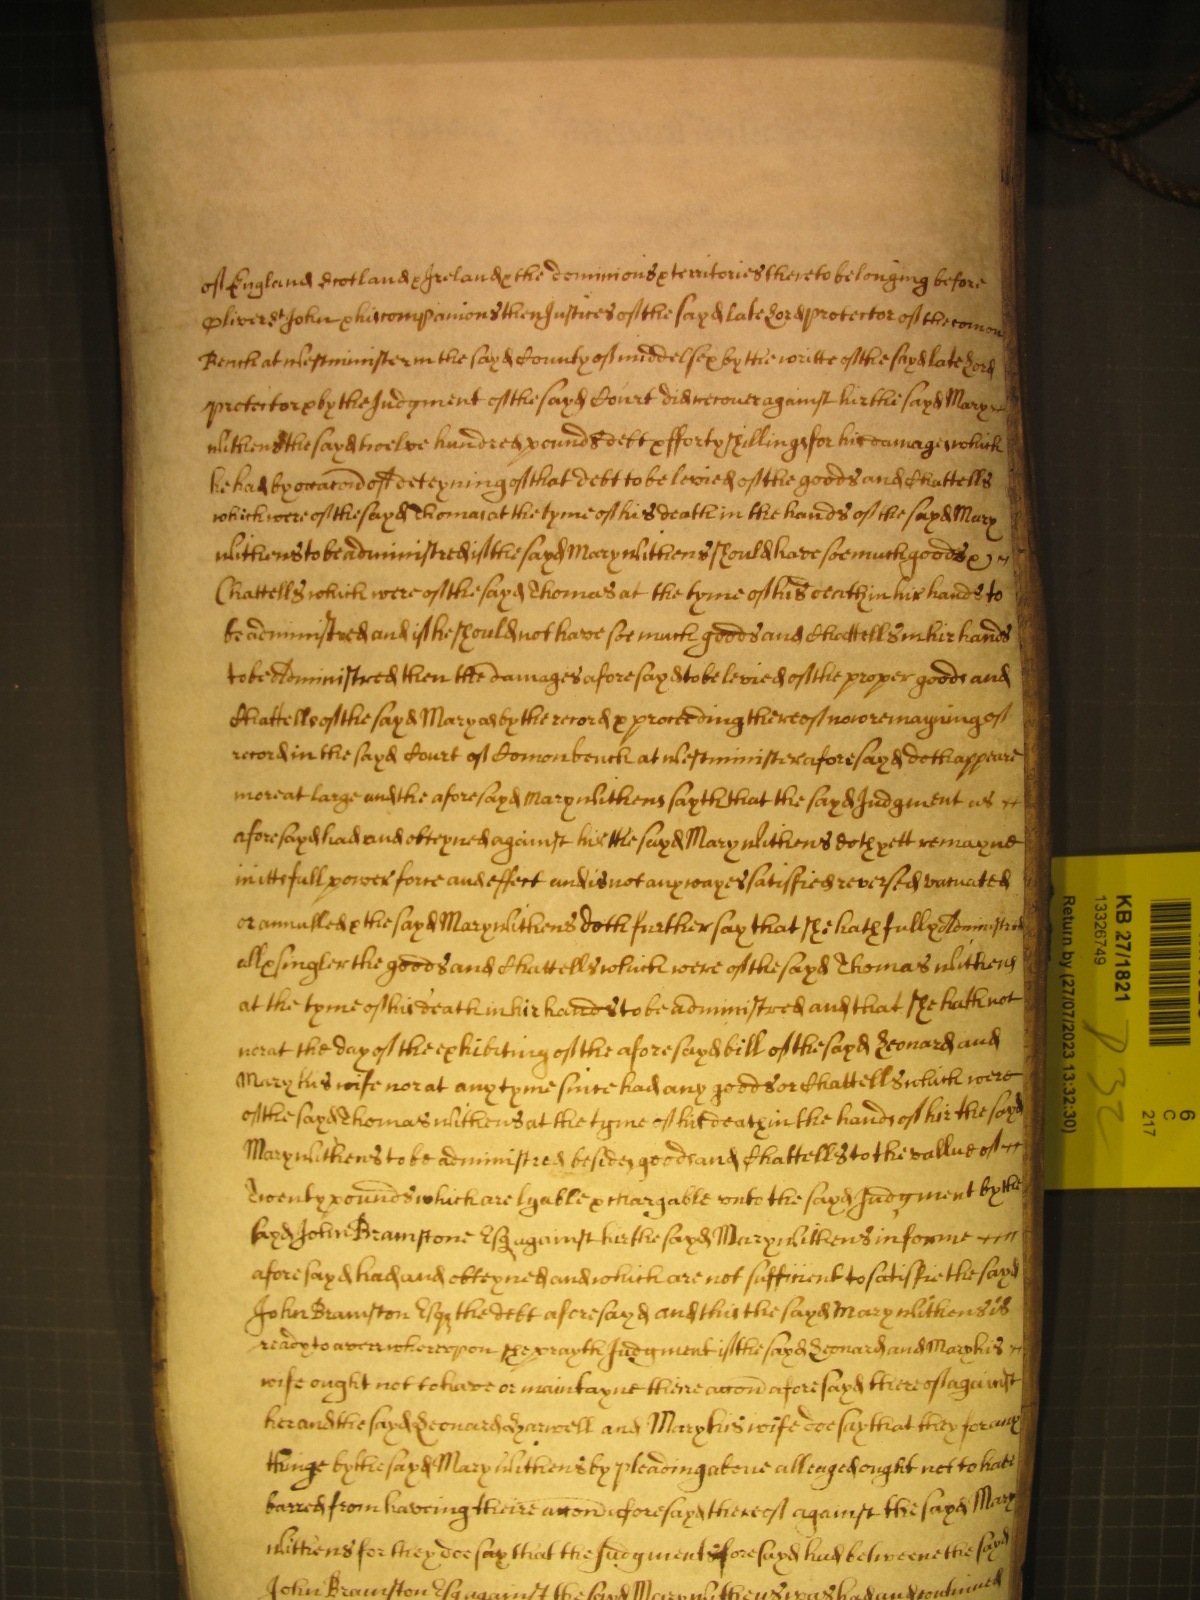 of England Scotland & Ireland & the dominions & territories thereto belonging before
Oliver St John & his companions then Justices of the sayd late Lord protector of the comon
Bench at Westminister in the sayd County of middelsex by the writte of the sayd late Lord
protector & by the Judgment of the sayd Court did recover against hir the sayd Mary
withens the sayd twelve hundred pounds debt & fforty shillings for his damages which
he had by occacon of deteyning of that debt to be levied of the goods and Chattells
which were of the sayd Thomas at the tyme of his death in the hands of the sayd Mary
withens to be administred if the sayd Mary withens should have soe much goods &
Chattells which were of the sayd Thomas at the tyme of his death in hir hands to
be administred and if she should not have soe much goods and Chattells in hir hands
to be Administred then the damages aforesayd to be levied of the proper goods and
Chattells of the sayd Mary as by the record & proceeding thereof now remayning of
record in the sayd Court of Comon bench at Westminister aforesayd doth appeare
more at large and the aforesayd Mary withens sayth that the sayd Judgment as
aforesayd had and obteyned against hir the sayd Mary withens doth yett remayne
in itts full power force and effect and is not any wayes satisfied reversed vacuated
or annulled & the sayd Mary withens doth further say that she hath fully Administred
all & singler the goods and Chattells which were of the sayd Thomas withens
at the tyme of his death in hir hands to be administred and that she hath not
nor at the day of the exhibiting of the aforesayd bill of the sayd Leonard and
Mary his wife nor at any tyme since had any goods or Chattells which were
of the sayd Thomas withens at the tyme of his death in the hands of hir the sayd
Mary withens to be administred besides goods and Chattells to the vallue of
Twenty pounds which are lyable & chargable unto the sayd Judgment by the
sayd John Bramstone Esq against hir the sayd Mary withens in forme
aforesayd had and obteyned and which are not sufficient to satisfie the sayd
John Bramston Esq the debt aforesayd and this the sayd Mary withens is
ready to averr whereupon she prayth Judgment if the sayd Leonard and Mary his
wife ought not to have or maintayne theire accon aforesayd thereof against
her and the sayd Leonard and Mary his wife doe say that they for any
thinge by the sayd Mary withens by pleading above alleaged ought not to have
barred from haveing theire accon aforesayd thereof against the sayd Mary
withens for they doe say that the Judgment aforesayd had betweene the sayd
John Bramston Esq against the sayd Mary withens was had and continued
KB 27/1821
13326749
Return by (27/07/2023 13:32:30)
6
C
217
P 32